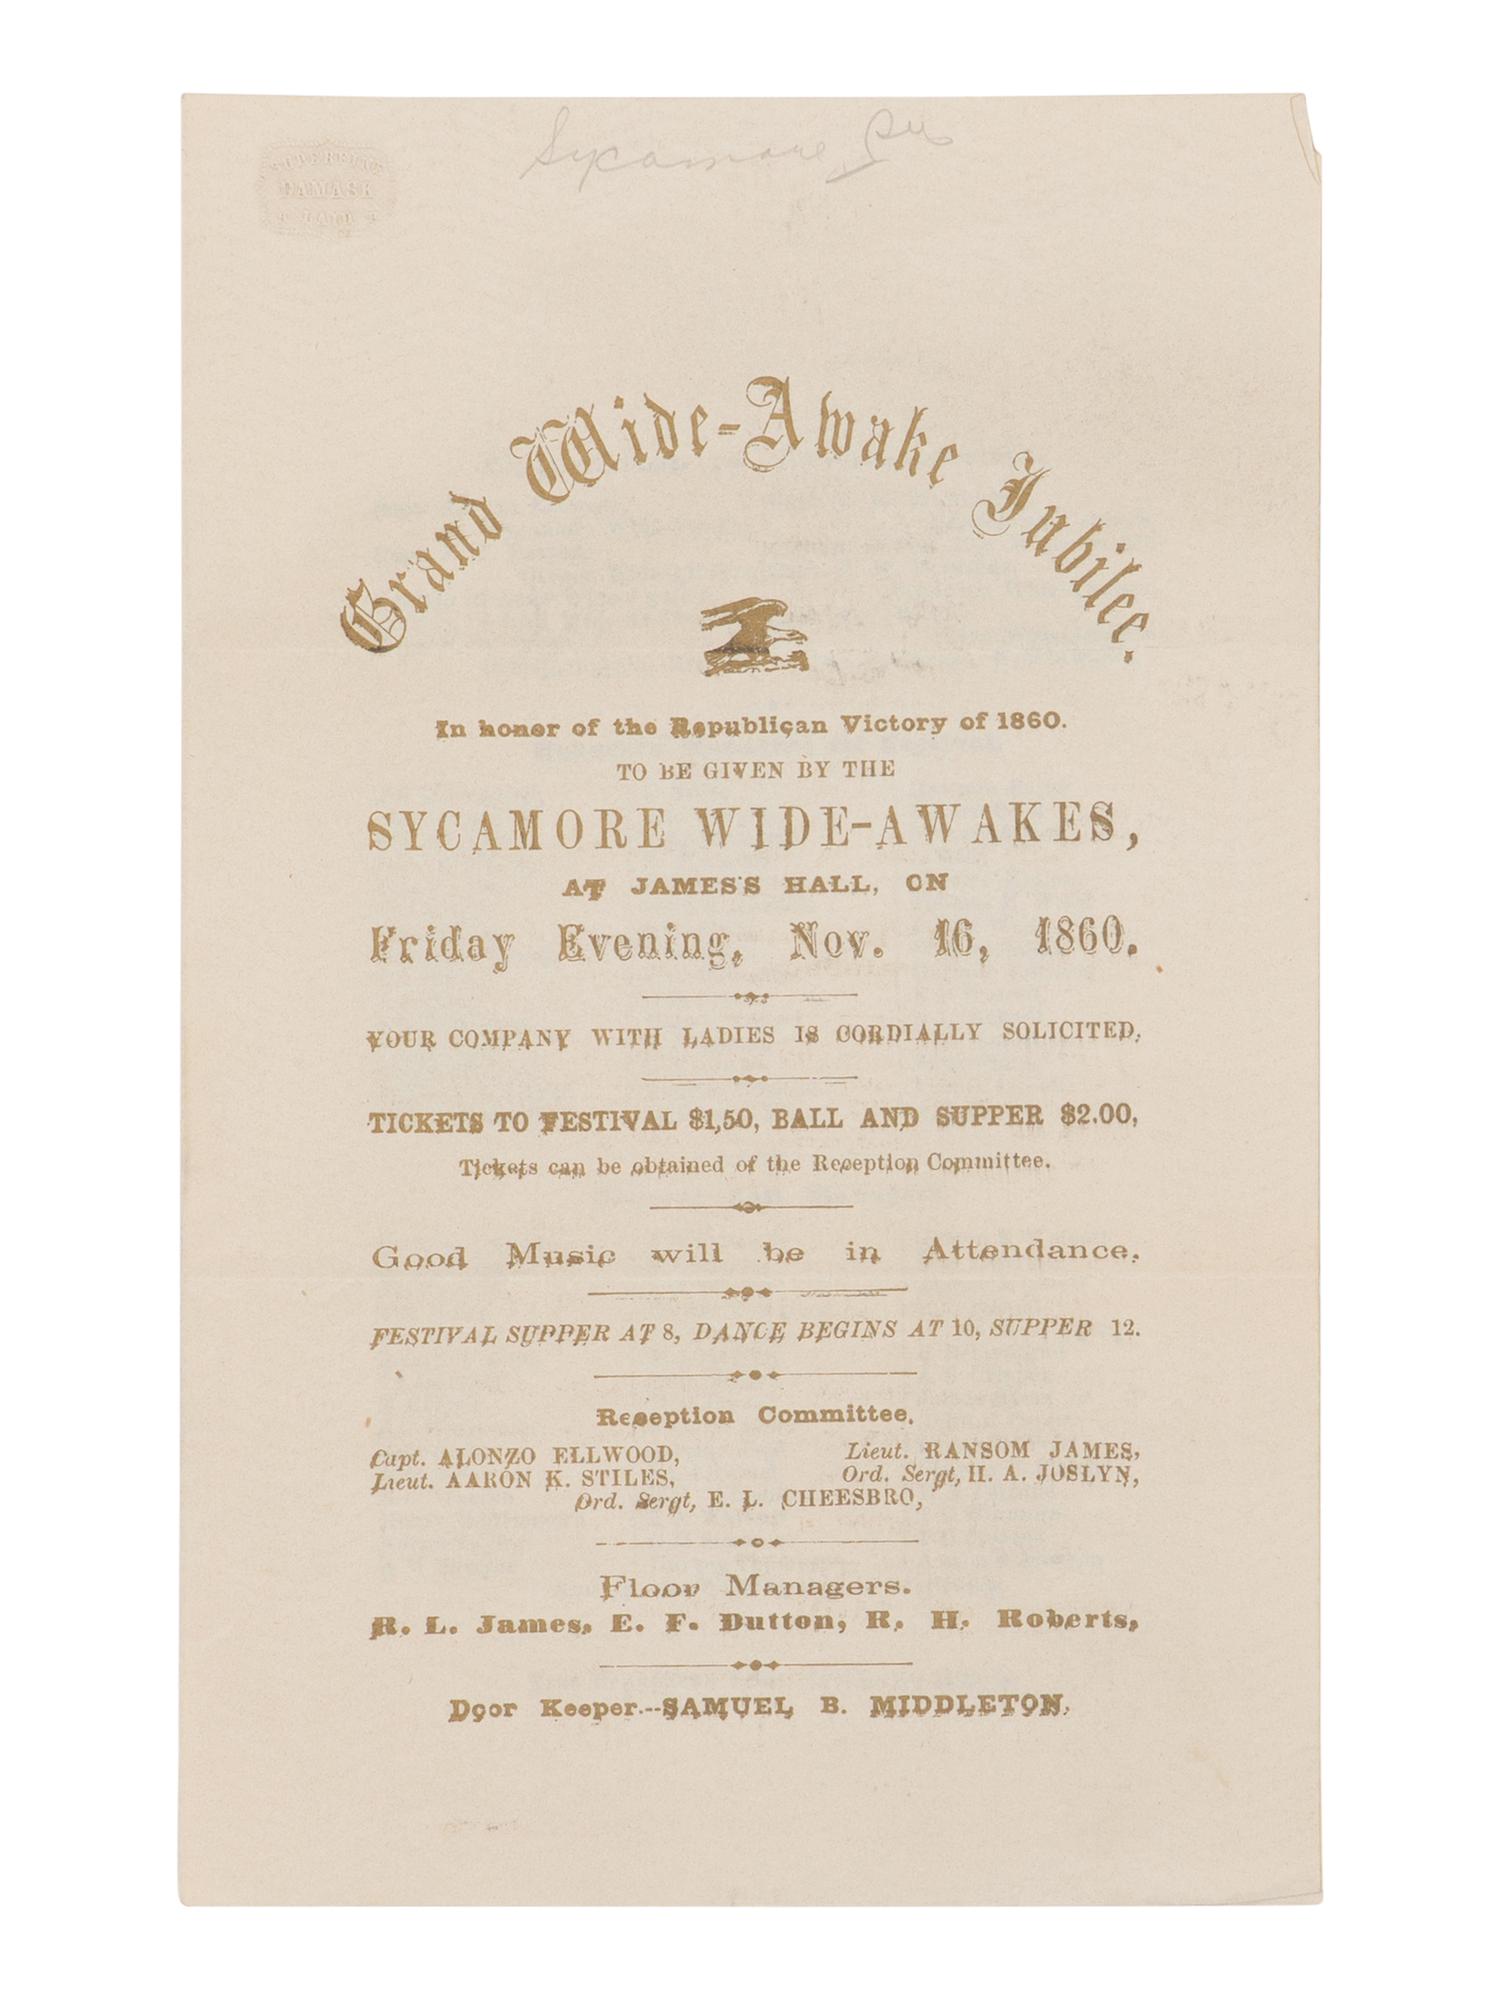 SUPERFINE
DAMASK
LAID
Sycamore
Grand Wide-Awake Jubilee.
In honor of the Republican Victory of 1860.
TO BE GIVEN BY THE
SYCAMORE WIDE-AWAKES,
AT JAMES'S HALL, ON
Friday Evening, Nov. 16, 1860.
YOUR COMPANY WITH LADIES IS CORDIALLY SOLICITED.
TICKETS TO FESTIVAL $1,50, BALL AND SUPPER $2.00,
Tickets can be obtained of the Reception Committee.
Good Music will be in Attendance.
FESTIVAL SUPPER AT 8, DANCE BEGINS AT 10, SUPPER 12.
Reception Committee.
Capt. ALONZO ELLWOOD, Lieut. RANSOM JAMES,
Lieut. AARON K. STILES, Ord. Sergt, H. A. JOSLYN,
Ord. Sergt, E. L. CHEESBRO,
Floor Managers.
R. L. James, E. F. Dutton, R. H. Roberts,
Door Keeper--SAMUEL B. MIDDLETON,